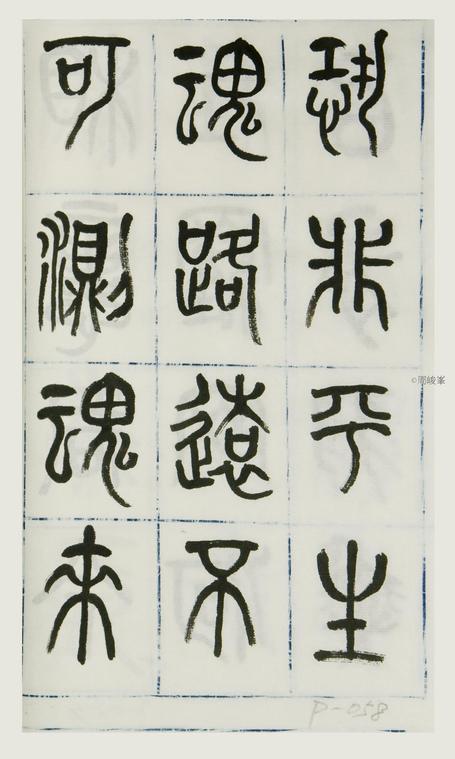 恐非平生
魂路遠不
可測魂来
P-058
©周峻峯